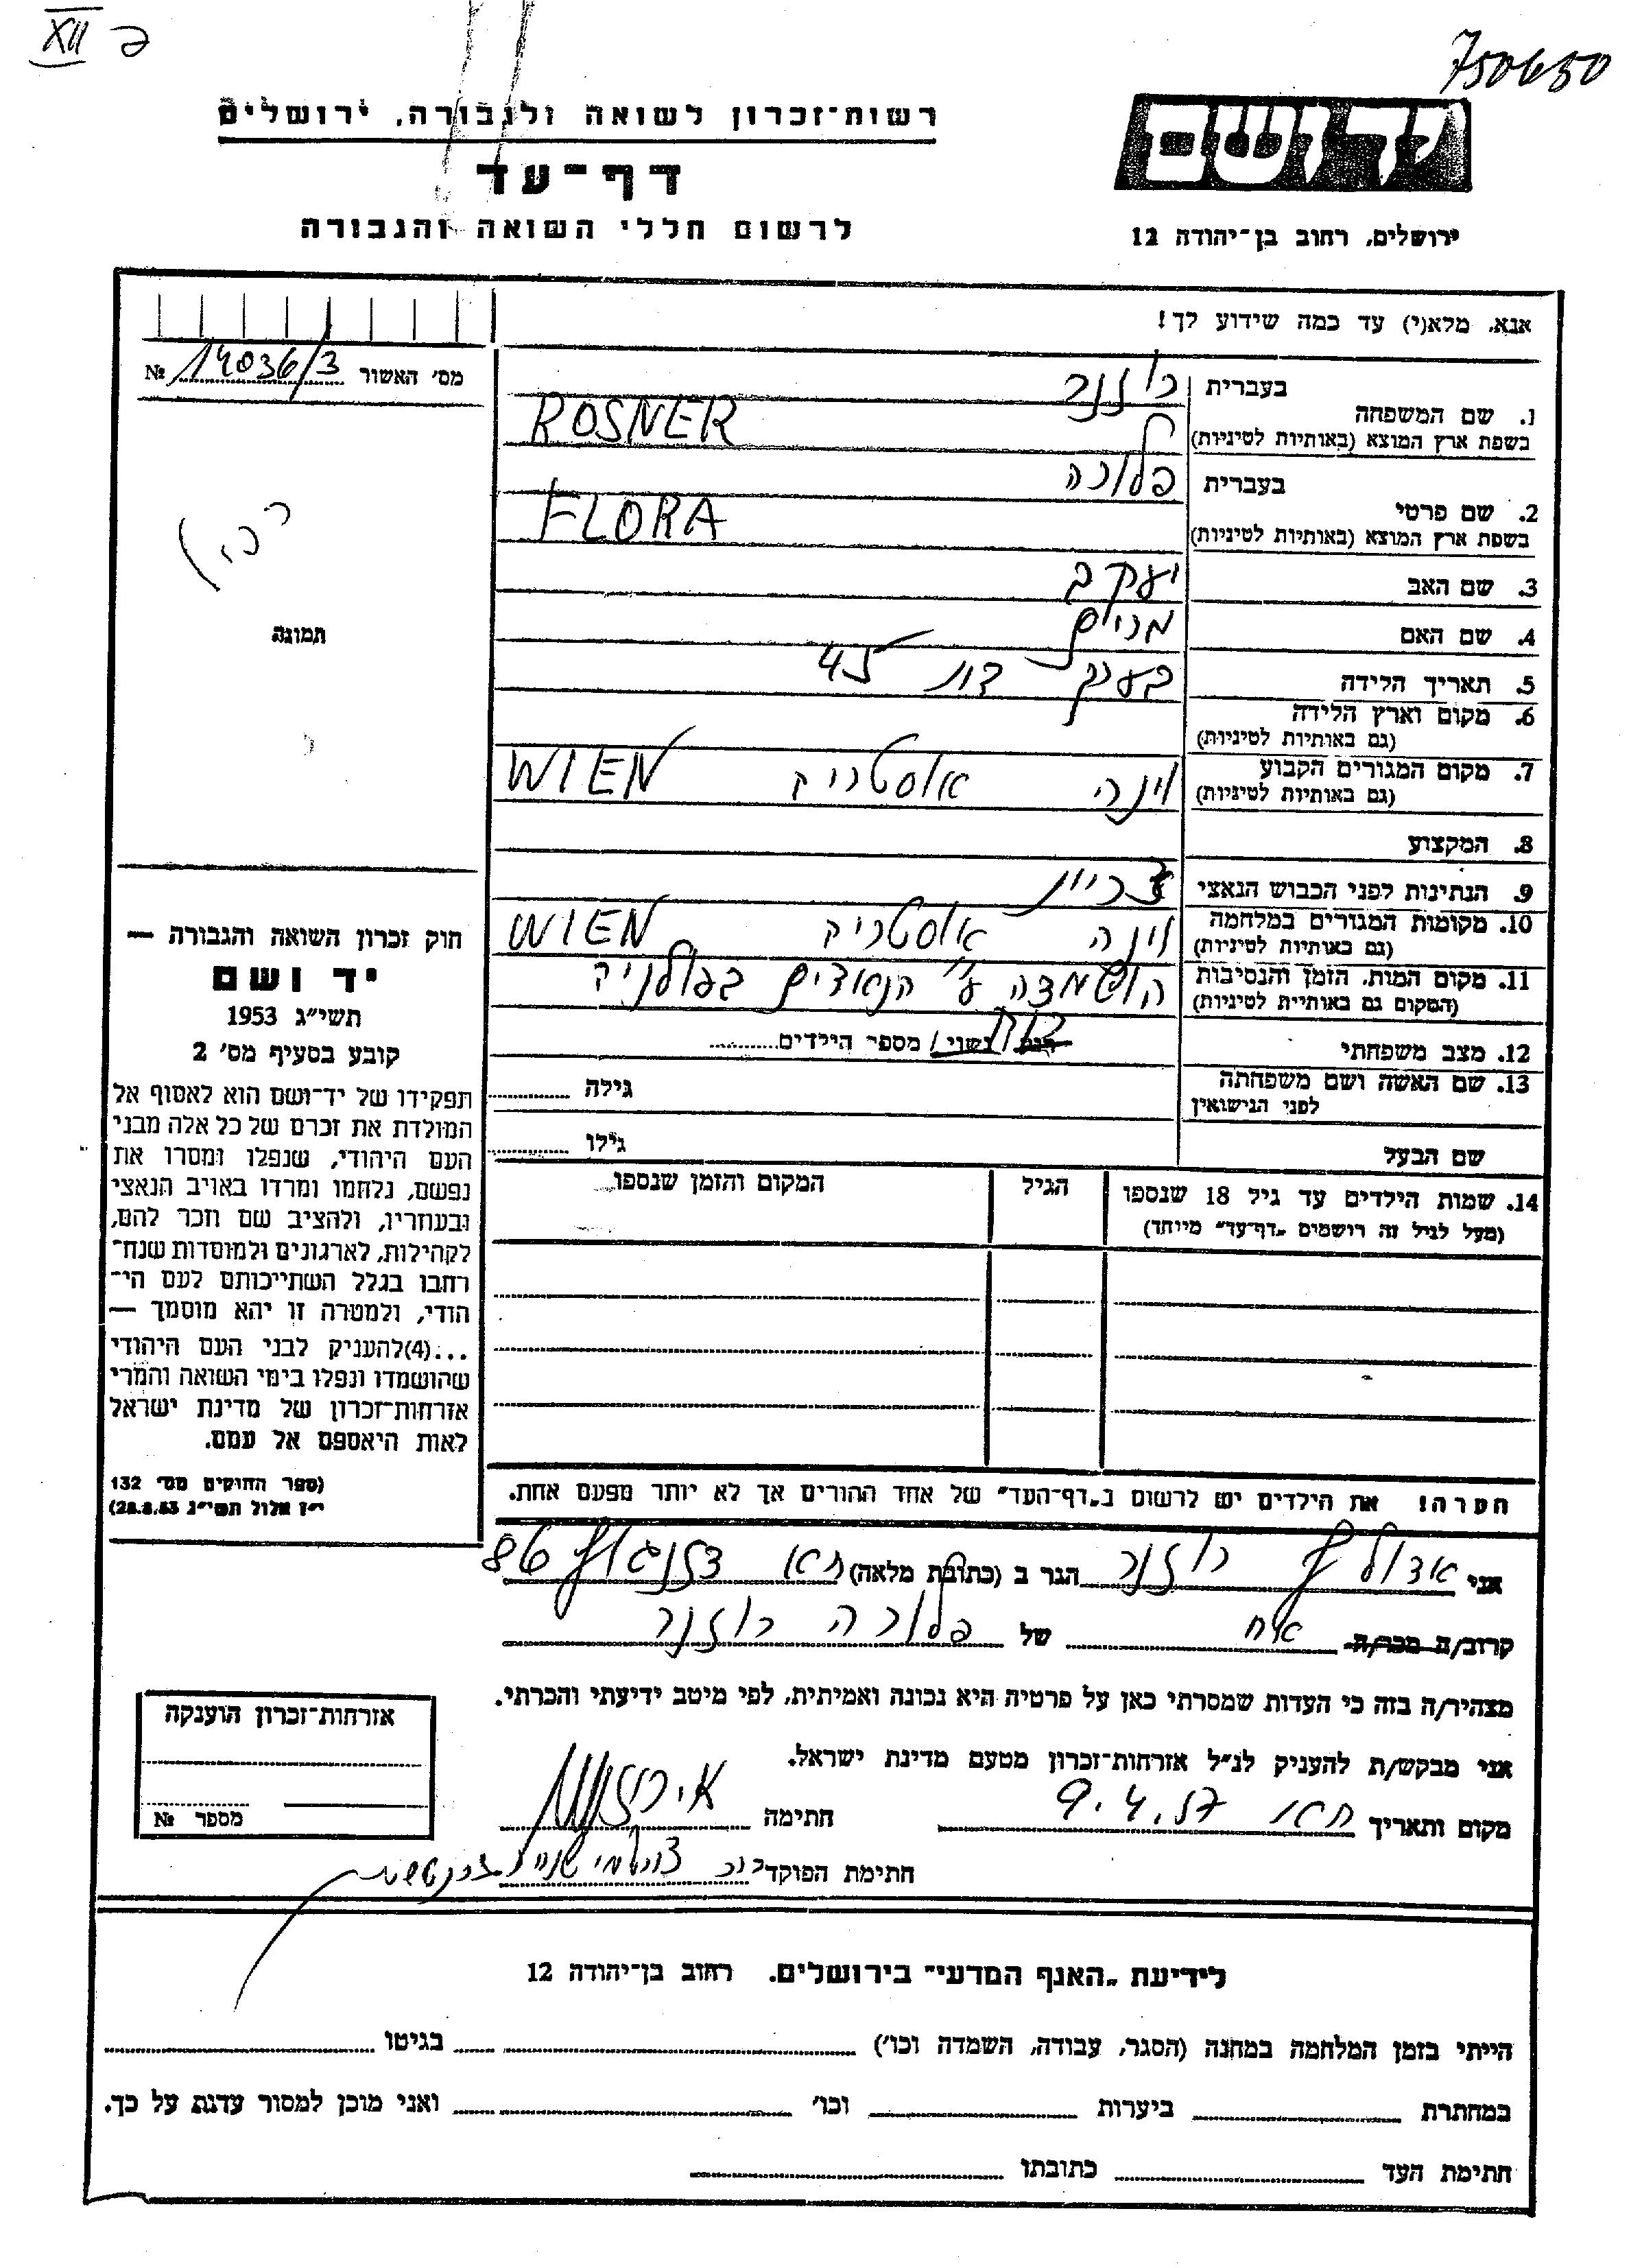 XII ב
750650
רשות־זכרון לשואה ולגבורה, ירושלים
דף־עד
לרשום חללי השואה והגבורה
יד ושם
ירושלים, רחוב בן־יהודה 12
אנא, מלא(י) עד כמה שידוע לך!
מס׳ האשור 14036/3 №
תמונה
בעברית רוזנר
1. שם המשפחה
בשפת ארץ המוצא (באותיות לטיניות) ROSNER
בעברית פלורה
2. שם פרטי
בשפת ארץ המוצא (באותיות לטיניות) FLORA
3. שם האב יעקב
4. שם האם מרים
5. תאריך הלידה בערך בת 45
6. מקום וארץ הלידה
(גם באותיות לטיניות)
7. מקום המגורים הקבוע וינה אוסטריה WIEN
(גם באותיות לטיניות)
8. המקצוע
9. הנתינות לפני הכבוש הנאצי
10. מקומות המגורים במלחמה וינה אוסטריה WIEN
(גם באותיות לטיניות)
11. מקום המות, הזמן והנסיבות הושמדה ע״י הנאצים בפולניה
(המקום גם באותיות לטיניות)
12. מצב משפחתי רוק נשוי / מספר הילדים
13. שם האשה ושם משפחתה גילה
לפני הנישואין
שם הבעל גילו
14. שמות הילדים עד גיל 18 שנספו הגיל המקום והזמן שנספו
(מעל לגיל זה רושמים „דף־עד״ מיוחד)
חוק זכרון השואה והגבורה —
יד ושם
תשי״ג 1953
קובע בסעיף מס׳ 2
תפקידו של יד־ושם הוא לאסוף אל
המולדת את זכרם של כל אלה מבני
העם היהודי, שנפלו ומסרו את
נפשם, נלחמו ומרדו באויב הנאצי
ובעוזריו, ולהציב שם וזכר להם,
לקהילות, לארגונים ולמוסדות שנח־
רחבו בגלל השתייכותם לעם הי־
הודי, ולמטרה זו יהא מוסמך —
...(4)להעניק לבני העם היהודי
שהושמדו ונפלו בימי השואה והמרי
אזרחות־זכרון של מדינת ישראל
לאות היאספם אל עמם.
(ספר החוקים מס׳ 132
י״ז אלול תשי״ג 28.8.53)
הערה! את הילדים יש לרשום ב„דף־העד״ של אחד ההורים אך לא יותר מפעם אחת.
אני אדולף רוזנר הגר ב (כתובת מלאה) ת״א דיזנגוף 86
קרוב/ה מכר/ה אח של פלורה רוזנר
מצהיר/ה בזה כי העדות שמסרתי כאן על פרטיה היא נכונה ואמיתית, לפי מיטב ידיעתי והכרתי.
אני מבקש/ת להעניק לנ״ל אזרחות־זכרון מטעם מדינת ישראל.
מקום ותאריך ת״א 9.4.57 חתימה
חתימת הפוקד
אזרחות־זכרון הוענקה
מספר №
לידיעת „האגף המדעי״ בירושלים. רחוב בן־יהודה 12
הייתי בזמן המלחמה במחנה (הסגר, עבודה, השמדה וכו׳) בגיטו
במחתרת ביערות וכו׳ ואני מוכן למסור עדות על כך.
חתימת העד כתובתו